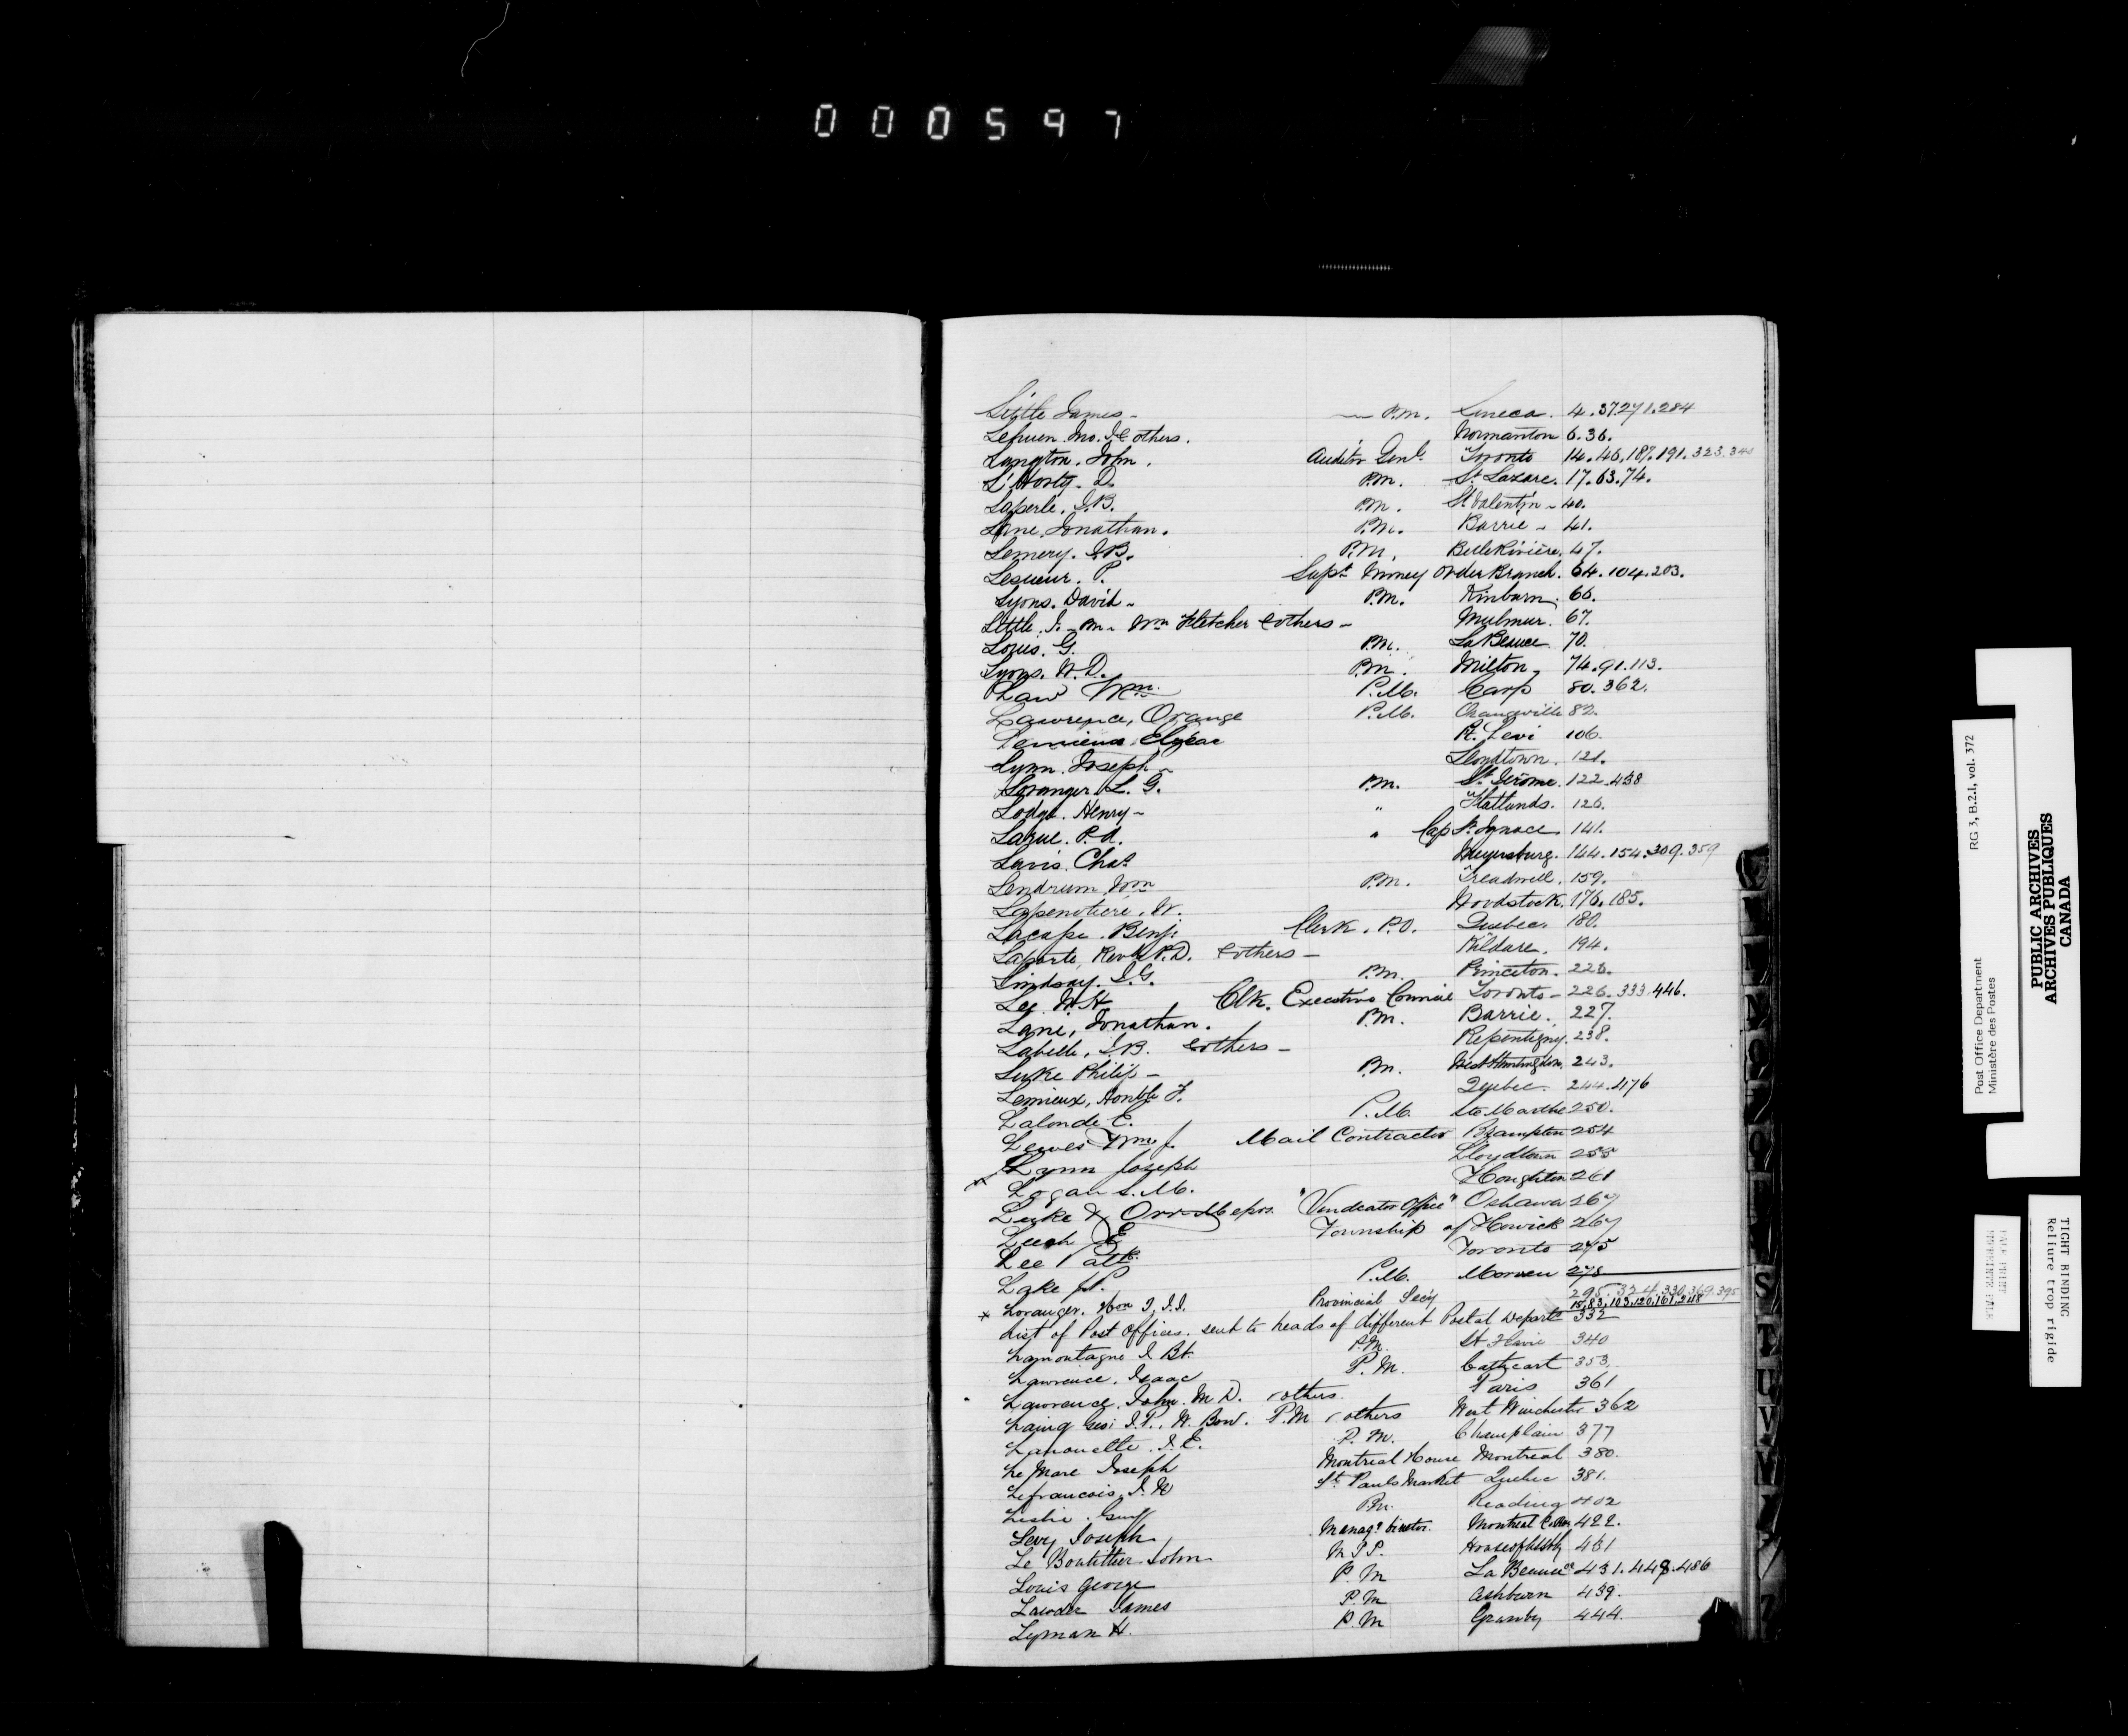 000597
Little James - P.M. Seneca. 4.37.271.284
Jno. I & others. Normanton 6.36.
Langton. John. Auditor Genl. Toronto 14.46.187.191.323.340
D. P.M. St. Lazare. 17.63.74.
Laperle, J.B. P.M. St Valentin - 40.
Lane, Jonathan. P.M. Barrie - 41.
Lemery. J.B. P.M. Belle Rivière. 47.
Lesueur. P. Supt. Money Order Branch. 64.104.203.
Lyons. David - P.M. Kinburn. 66.
Little. J. - M - Wm Fletcher & others - Mulmur. 67.
Louis. G. P.M. La Beauce 70.
Lyons. W.D. P.M. Milton, 74.91.113.
Law Wm. P.M. Carp 80.362.
Lawrence, Orange P.M. Orangeville 82.
Lemieux, Elzear Pt. Levi 106.
Lynn. Joseph - Lloydtown. 121.
Loranger L. G. P.M. St. Jerome. 122.438
Lodge. Henry - " Flatlands. 126.
Larue. P.A. " Cap St. Ignace. 141.
Chas. Meyersburg. 144.154.309.359
Lendrum Wm P.M. Treadwell. 159.
Lapenotiere. W. Woodstock. 176.185.
Benj: Clerk. P.O. Quebec. 180.
Laporte, Revd. P.D. & others - Kildare. 194.
Lindsay. J.G. P.M. Princeton. 226.
Lee W.H. Clk. Executive Council Toronto - 226.333.446.
Lane, Jonathan. P.M. Barrie. 227.
Labelle, J.B. & others - Repentigny. 238.
Luke Philip - P.M. West Huntingdon. 243.
Lemieux, Honble F. Quebec. 244.476
Lalonde E. P.M. Ste Marthe 250.
Lewes Wm. J. Mail Contractor Brampton 254
Lynn Joseph Lloydtown 255
x Logan S. M. Houghton 261
Luke & Orr Messrs. "Vindicator Office" Oshawa 267
Leech E Township of Howick 267
Lee Patk. Toronto 275
Lake J.P. P.M. Morven 278
295.324.330.369.395
x Loranger. Hon T.J.J. Provincial Secy 15.83.103.120.161.248
List of Post Offices. sent to heads of different Postal Departs 332
Lamontagne J. Bt. P.M. St Flavie 340
Lawrence, Isaac P.M. Cathcart 353.
Lawrence. John. M D. & others. Paris 361
Laing Geo: J.P., W. Bow. P.M. & others West Winchester 362
Lanouette. J. E. P.M. Champlain 377
Le Mare Joseph Montreal House Montreal 380.
Lefrancois, J. N St. Pauls Market Quebec 381.
Leslie. Guy P.M. Reading 402
Levy Joseph Manag. Director. Montreal 422.
Le Boutillier John M P P. House of Assbly 431
Louis George P. M La Beauce 431.448.486
Lawder James P. M Ashburn 439.
Lyman H. P. M Granby 444.
S
T
U
V
W
Post Office Department RG 3, B.2.I, vol. 372
Ministère des Postes
PUBLIC ARCHIVES
ARCHIVES PUBLIQUES
CANADA
TIGHT BINDING
Reliure trop rigide